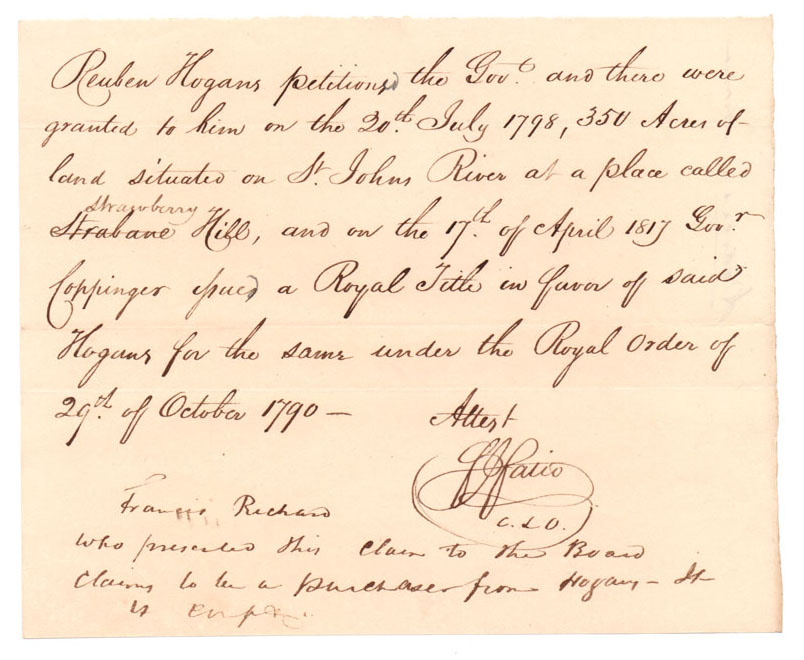 Reuben Hogans petitioned the Govt. and there were
granted to him on the 20th. July 1798, 350 Acres of
land situated on St. Johns River at a place called
strawberry
Strabane Hill, and on the 17th. of April 1817 Govr.
Coppinger issued a Royal Title in favor of said
Hogans for the same under the Royal Order of
29th. of October 1790 —
Attest
F J Fatio
C. L. O.
Francis Richard
who presented this claim to the Board
claims to be a purchaser from Hogans — It
is